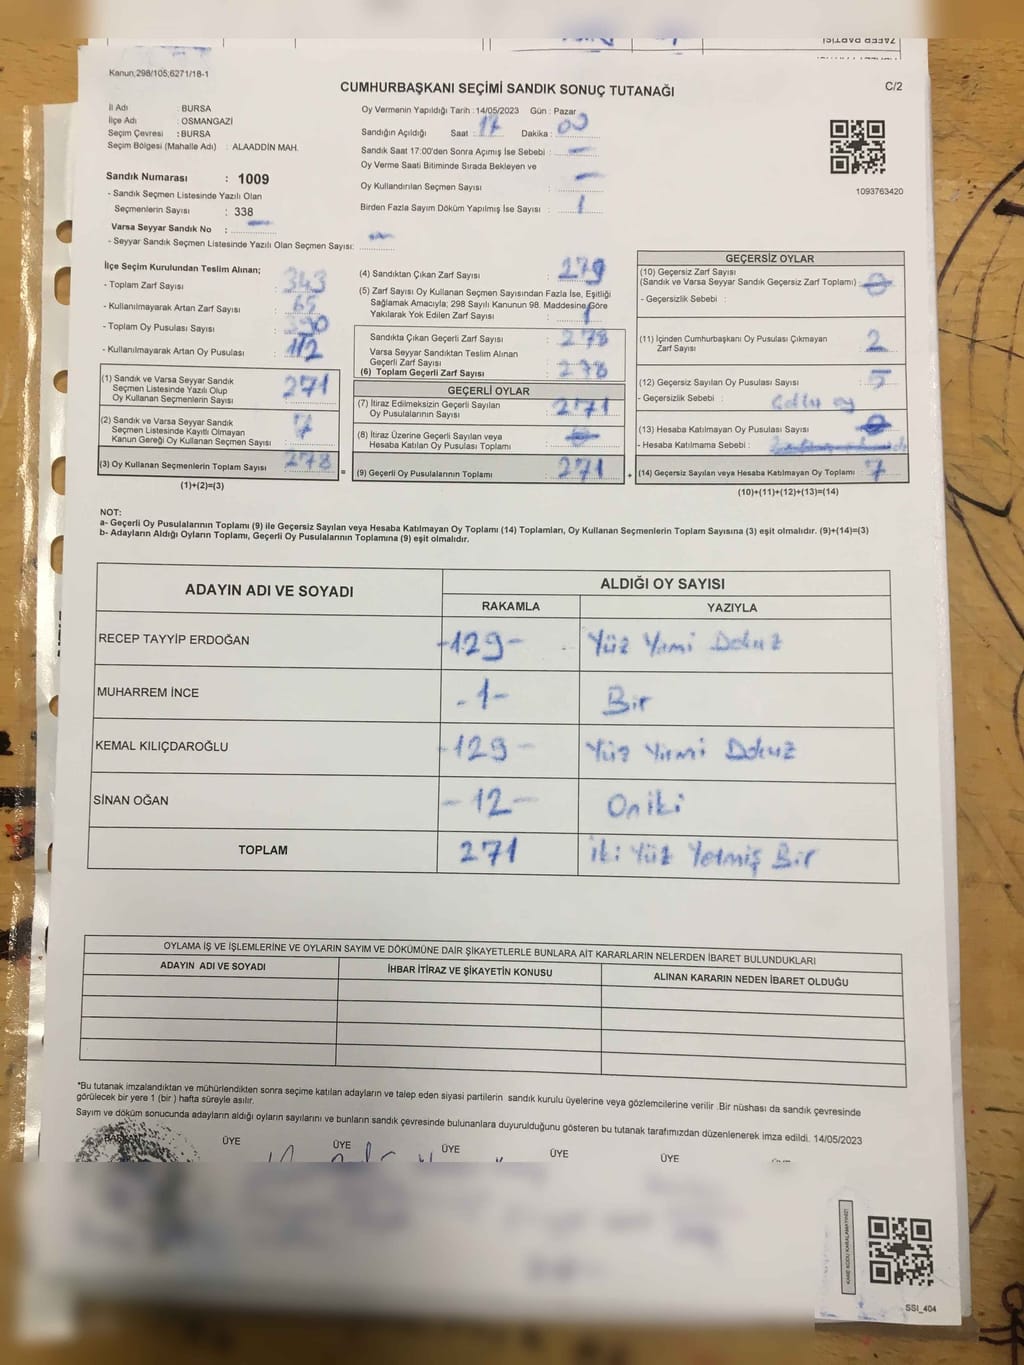 Kanun;298/105;6271/18-1
CUMHURBAŞKANI SEÇİMİ SANDIK SONUÇ TUTANAĞI
C/2
İl Adı : BURSA
İlçe Adı : OSMANGAZİ
Seçim Çevresi : BURSA
Seçim Bölgesi (Mahalle Adı) : ALAADDİN MAH.
Oy Vermenin Yapıldığı Tarih : 14/05/2023 Gün : Pazar
Sandığın Açıldığı Saat : 17 Dakika : 00
Sandık Saat 17:00'den Sonra Açımış İse Sebebi : -
Oy Verme Saati Bitiminde Sırada Bekleyen ve
Oy Kullandırılan Seçmen Sayısı : -
Birden Fazla Sayım Döküm Yapılmış İse Sayısı : 1
1093763420
Sandık Numarası : 1009
- Sandık Seçmen Listesinde Yazılı Olan
Seçmenlerin Sayısı : 338
Varsa Seyyar Sandık No : -
- Seyyar Sandık Seçmen Listesinde Yazılı Olan Seçmen Sayısı: -
İlçe Seçim Kurulundan Teslim Alınan;
- Toplam Zarf Sayısı : 343
- Kullanılmayarak Artan Zarf Sayısı : 65
- Toplam Oy Pusulası Sayısı :
- Kullanılmayarak Artan Oy Pusulası : 112
(1) Sandık ve Varsa Seyyar Sandık
Seçmen Listesinde Yazılı Olup
Oy Kullanan Seçmenlerin Sayısı : 271
(2) Sandık ve Varsa Seyyar Sandık
Seçmen Listesinde Kayıtlı Olmayan
Kanun Gereği Oy Kullanan Seçmen Sayısı : 7
(3) Oy Kullanan Seçmenlerin Toplam Sayısı : 278
(1)+(2)=(3)
(4) Sandıktan Çıkan Zarf Sayısı : 279
(5) Zarf Sayısı Oy Kullanan Seçmen Sayısından Fazla İse, Eşitliği
Sağlamak Amacıyla; 298 Sayılı Kanunun 98. Maddesine Göre
Yakılarak Yok Edilen Zarf Sayısı : 1
Sandıkta Çıkan Geçerli Zarf Sayısı : 278
Varsa Seyyar Sandıktan Teslim Alınan
Geçerli Zarf Sayısı :
(6) Toplam Geçerli Zarf Sayısı : 278
GEÇERLİ OYLAR
(7) İtiraz Edilmeksizin Geçerli Sayılan
Oy Pusulalarının Sayısı : 271
(8) İtiraz Üzerine Geçerli Sayılan veya
Hesaba Katılan Oy Pusulası Toplamı :
= (9) Geçerli Oy Pusulalarının Toplamı : 271
GEÇERSİZ OYLAR
(10) Geçersiz Zarf Sayısı
(Sandık ve Varsa Seyyar Sandık Geçersiz Zarf Toplamı) : 0
- Geçersizlik Sebebi :
(11) İçinden Cumhurbaşkanı Oy Pusulası Çıkmayan
Zarf Sayısı : 2
(12) Geçersiz Sayılan Oy Pusulası Sayısı : 5
- Geçersizlik Sebebi : oy
(13) Hesaba Katılmayan Oy Pusulası Sayısı : 0
- Hesaba Katılmama Sebebi :
+ (14) Geçersiz Sayılan veya Hesaba Katılmayan Oy Toplamı : 7
(10)+(11)+(12)+(13)=(14)
NOT:
a- Geçerli Oy Pusulalarının Toplamı (9) ile Geçersiz Sayılan veya Hesaba Katılmayan Oy Toplamı (14) Toplamları, Oy Kullanan Seçmenlerin Toplam Sayısına (3) eşit olmalıdır. (9)+(14)=(3)
b- Adayların Aldığı Oyların Toplamı, Geçerli Oy Pusulalarının Toplamına (9) eşit olmalıdır.
ADAYIN ADI VE SOYADI ALDIĞI OY SAYISI
RAKAMLA YAZIYLA
RECEP TAYYİP ERDOĞAN -129- Yüz Yirmi Dokuz
MUHARREM İNCE -1- Bir
KEMAL KILIÇDAROĞLU -129- Yüz Yirmi Dokuz
SİNAN OĞAN -12- Oniki
TOPLAM 271 İki Yüz Yetmiş Bir
OYLAMA İŞ VE İŞLEMLERİNE VE OYLARIN SAYIM VE DÖKÜMÜNE DAİR ŞİKAYETLERLE BUNLARA AİT KARARLARIN NELERDEN İBARET BULUNDUKLARI
ADAYIN ADI VE SOYADI İHBAR İTİRAZ VE ŞİKAYETİN KONUSU ALINAN KARARIN NEDEN İBARET OLDUĞU
*Bu tutanak imzalandıktan ve mühürlendikten sonra seçime katılan adayların ve talep eden siyasi partilerin sandık kurulu üyelerine veya gözlemcilerine verilir .Bir nüshası da sandık çevresinde
görülecek bir yere 1 (bir ) hafta süreyle asılır.
Sayım ve döküm sonucunda adayların aldığı oyların sayılarını ve bunların sandık çevresinde bulunanlara duyurulduğunu gösteren bu tutanak tarafımızdan düzenlenerek imza edildi. 14/05/2023
BAŞKAN ÜYE ÜYE ÜYE ÜYE ÜYE
SSİ_404